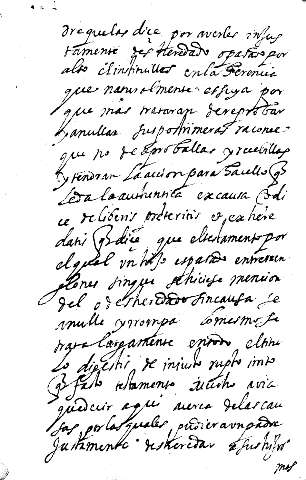 dre que las dice por averles injus
tamente desheredado o pasado por
alto el instituilles en la herencia
que naturalmente es suya por
que mas trataran de reprobar
y anullar sus postrimeras racone
que no de aproballas y recivillas
y tendran la accion para hacello q
les da la authentica ex causa C. di
de liberis preteritis et exhere
datis q dice que el testamento por
el qual un hijo es pasado entre ren
glones sin que se hiciese mencion
del o desheredado sin causa se
anulle y rrompa lo mesmo se
trata largamente en todo el titu
lo digestis de injusto rupto irrito
facto testamento mucho avia
que decir aqui acerca de las cau
sas por las quales pudiera un padre
justamente desheredar a sus hijos
mas